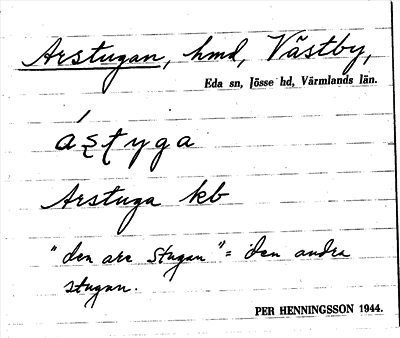 Arstugan, hmd, Västby,
Eda sn, Jösse hd, Värmlands län.
áʂtyga
Arstuga kb
"den are stugan" = den andra
stugan.
PER HENNINGSSON 1944.